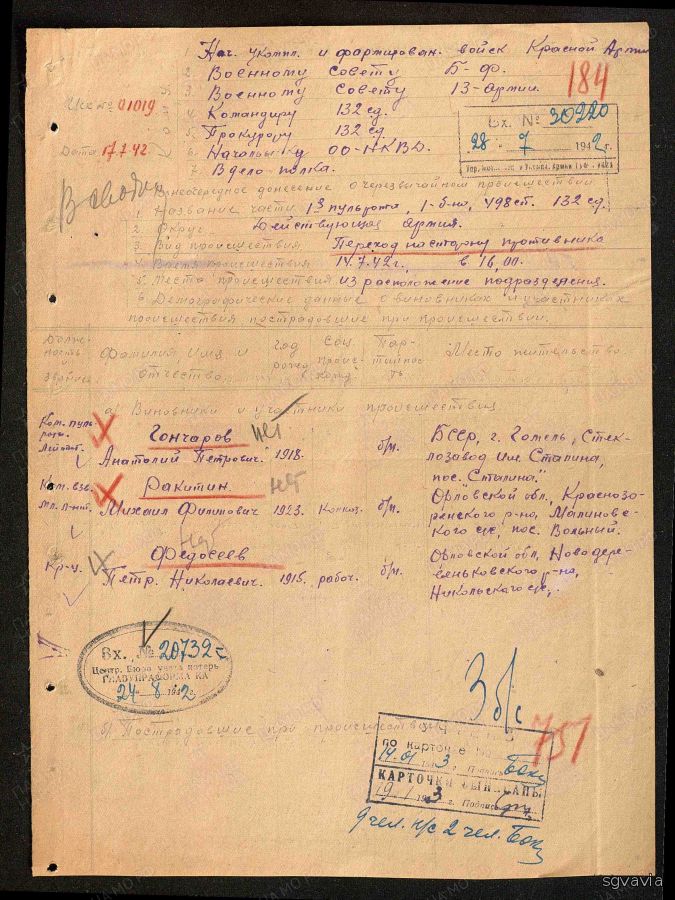 1 Нач. укомпл. и формирован. войск Красной Арми
2. Военному совету Б-Ф.
3. Военному совету 13-Армии.
4. Командиру 132 сд.
5. Прокурору 132 сд.
6. Начальнику ОО-НКВД.
7. В дело полка.
184
Исх № 01019
Дата 17.7.42
Вх. № 30220
28 - 7 1942 г.
Внеочередное донесение о чрезвычайном происшествии
1. Название части 1я пульрота, 1-б-но, 498 сп. 132 сд.
2. Округ. Действующая армия.
3. Вид происшествия Переход на сторону противника
4. Время происшествия 14.7.42 г. в 16,00.
5. Места происшествия из расположение подразделения.
6. Демографические данные о виновниках и участниках
происшествия пострадавшие при происшествии.
Долж-
ность
звание
Фамилия Имя и
отчество
год
рожд
Соц.
проис-
хожд
Пар-
тийнос-
ть
Место жительство
а) Виновники и участники происшествия
Ком. пуль-
роты.
Лейтент.
Гончаров нет
Анатолий Петрович. 1918. б/п.
БССР, г. Гомель, Стек-
лозавод им Сталина,
пос. Сталина."
Ком. взв.
мл. л-нт.
Ракитин нет
Михаил Филипович 1923. Колхоз. б/п.
Орловской обл., Краснозо-
ренского р-на, Малинове-
кого с/с, пос. Вольный.
Кр-ц.
нет
Федосеев
Петр. Николаевич. 1915. рабоч. б/п.
Орловской обл, Новодере-
веньковского р-на,
Никольского с/с,.
Вх. № 20732с
Центр. Бюро учета потерь
ГЛАВУПРАФОРМА КА
24 - 8 1942 г.
3 б/с
б) Пострадавшие при происшествии
757
по карточке
14.01 1943 г. Подпись
КАРТОЧКИ ВЫПИСАНЫ
19/1 1943 г. Подпись
чел. н/с 2 чел.
sgvavia